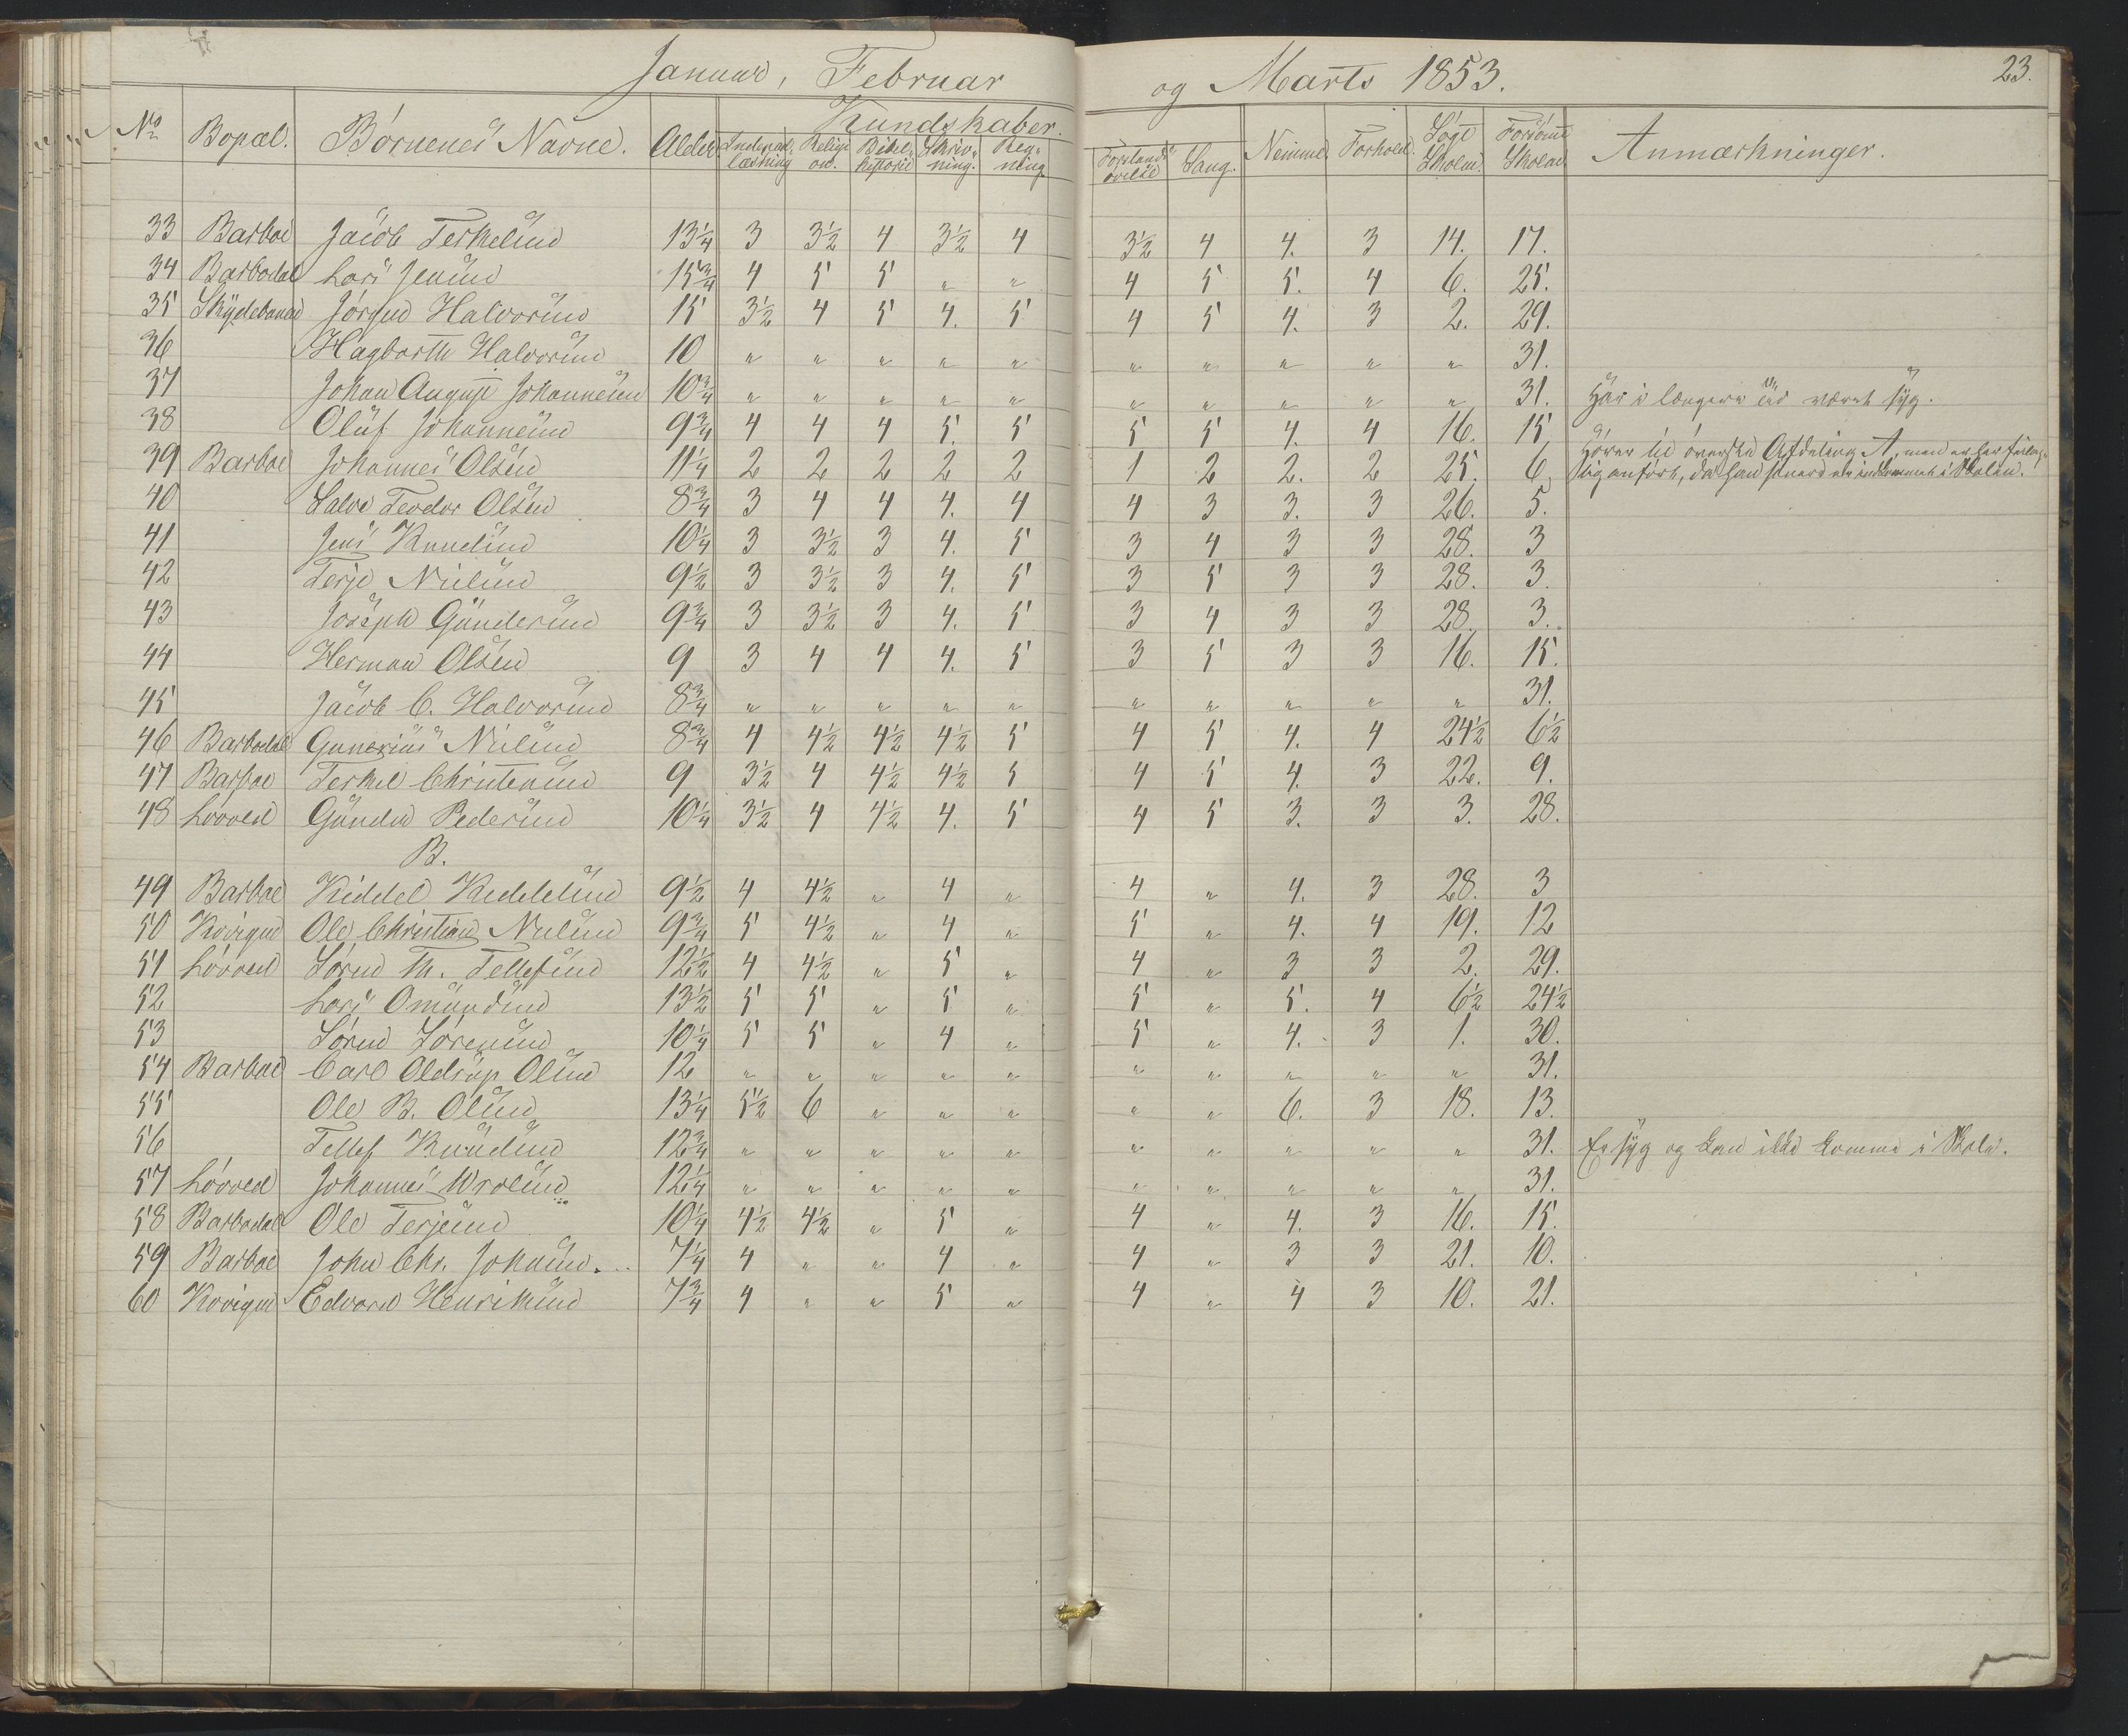 Januar, Februar og Marts 1853. 23.
No Bopæl. Börnenes Navne. Alder. Kundskaber.
Indenadlæsning Religion. Bibelhistorie Skrivning. Regning. Forstandsövelse Sang. Nemme. Forhold. Sögt Skolen. Forsömt Skolen. Anmærkninger.
33 Barboe Jacob Terkelsen 13¼ 3 3½ 4 3½ 4 3½ 4 4. 3 14. 17.
34 Barbodal Lars Jensen 15¾ 4 5 5 " " 4 5 5. 4 6. 25.
35 Skydebanen Jörgen Halvorsen 15 3½ 4 5 4. 5 4 5 4. 3 2. 29.
36 Hagbarth Halvorsen 10 " " " " " " " " " " 31.
37 Johan August Johannesen 10¾ " " " " " " " " " " 31. Har i længere Tid været syg.
38 Oluf Johannesen 9¾ 4 4 4 5. 5 5 5 4. 4 16. 15
39 Barboe Johannes Olsen 11¼ 2 2 2 2 2 1 2 2. 2 25. 6 Hörer til överste Afdeling A, men er her
anfört, da han er indkommet i Skolen.
40 Salve Teodor Olsen 8¾ 3 4 4 4. 4 4 3 3. 3 26. 5.
41 Jens Knudsen 10¼ 3 3½ 3 4. 5 3 4 3 3 28. 3
42 Terje Nielsen 9½ 3 3½ 3 4. 5 3 5 3 3 28. 3.
43 Joseph Gundersen 9¾ 3 3½ 3 4. 5 3 4 3 3 28. 3.
44 Herman Olsen 9 3 4 4 4. 5 3 5 3 3 16. 15.
45 Jacob C. Halvorsen 8¾ " " " " " " " " " " 31.
46 Barbodal Gunerius Nielsen 8¾ 4 4½ 4½ 4½ 5 4 5 4. 4 24½ 6½
47 Barboe Terkel Christensen 9 3½ 4 4½ 4½ 5 4 5 4. 3 22. 9.
48 Lööved Gunder Pedersen 10¼ 3½ 4 4½ 4. 5 4 5 3. 3 3. 28.
B.
49 Barboe Kiddel Kiddelsen 9½ 4 4½ " 4 " 4 " 4. 3 28. 3
50 Kvigen Ole Christian Nielsen 9¾ 5 4½ " 4 " 5 " 4. 4 19. 12
51 Lööved Sören Th. Tellefsen 12½ 4 4½ " 5 " 4 " 3 3 2. 29.
52 Lars Omundsen 13½ 5 5 " 5 " 5 " 5. 4 6½ 24½
53 Sören Sörensen 10¼ 5 5 " 4 " 5 " 4. 3 1. 30.
54 Barboe Carl Oldrup Olsen 12 " " " " " " " " " " 31.
55 Ole B. Olsen 13¼ 5½ 6 " " " " " 6. 3 18. 13.
56 Tellef Knudsen 12¾ " " " " " " " " " " 31. Er syg og kan ikke komme i Skole.
57 Lööved Johannes Wrolsen 12¼ " " " " " " " " " " 31.
58 Barbodal Ole Terjesen 10¼ 4½ 4½ " 5 " 4 " 4. 3 16. 15.
59 Barboe John Chr. Johnsen. 7¼ 4 " " 4 " 4 " 3 3 21. 10.
60 Kvigen Edvard Henriksen 7¾ 4 " " 5 " 4 " 4 3 10. 21.